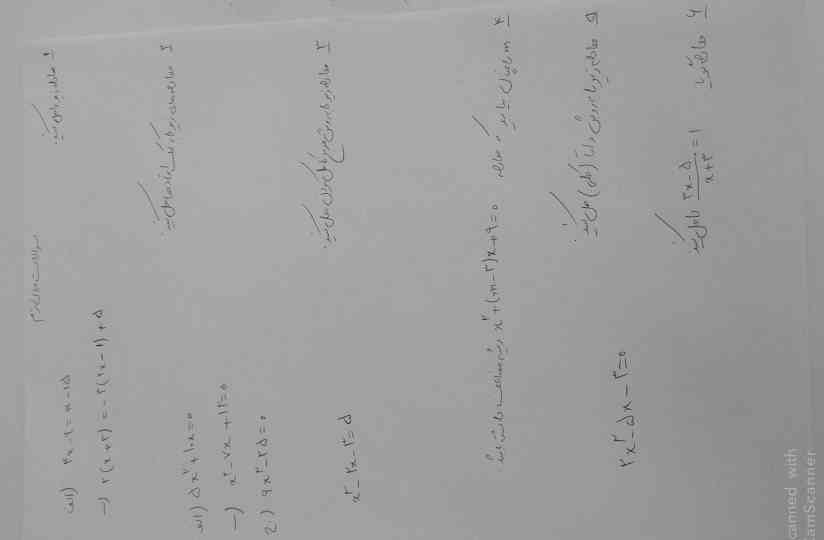 ۱ معادله زیر را حل کنید.
الف) ۳x-۹=x-۱۵
ب) ۲(x+۳)=-۳(۲x-۱)+۵
۲ معادله‌های زیر را به روش تجزیه حل کنید.
الف) ۵x^۲+۱۰x=۰
ب) x^۲-۷x+۱۲=۰
ج) ۹x^۲-۲۵=۰
۳ معادله زیر را به روش مربع کامل کردن حل کنید.
x^۲-۲x-۲=۵
۴ m را چنان بیابید که معادله x^۲+(m-۲)x+۹=۰ ریشه مضاعف داشته باشد
۵ معادله زیر را به روش دلتا (کلی) حل کنید.
۲x^۲-۵x-۳=۰
۶ معادله گویا (۳x-۵)/(x+۳)=۱ را حل کنید
canned with
amScanner